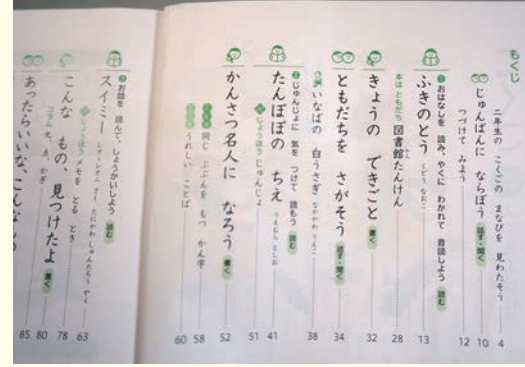 もくじ
二年生の こくごの まなびを 見わたそう 4
じゅんばんに ならぼう 話す・聞く 10
つづけて みよう 12
❶おはなしを 読み、やくに わかれて 音読しよう 読む
ふきのとう くどう なおこ 13
本は ともだち 図書館たんけん 28
きょうの できごと 書く 32
ともだちを さがそう 話す・聞く 34
いなばの 白うさぎ なかがわ りえこ 38
❷じゅんじょに 気を つけて 読もう 読む
たんぽぽの ちえ うえむら としお 41
じょうほう じゅんじょ 51
かんさつ名人に なろう 書く 52
同じ ぶぶんを もつ かん字 58
うれしい ことば 60
❸お話を 読んで、しょうかいしよう 読む
スイミー レオ=レオニ さく たにかわ しゅんたろう やく 63
じょうほう メモを とる とき
こんな もの、見つけたよ 書く 78
コラム 丸、点、かぎ 80
あったらいいな、こんなもの 85